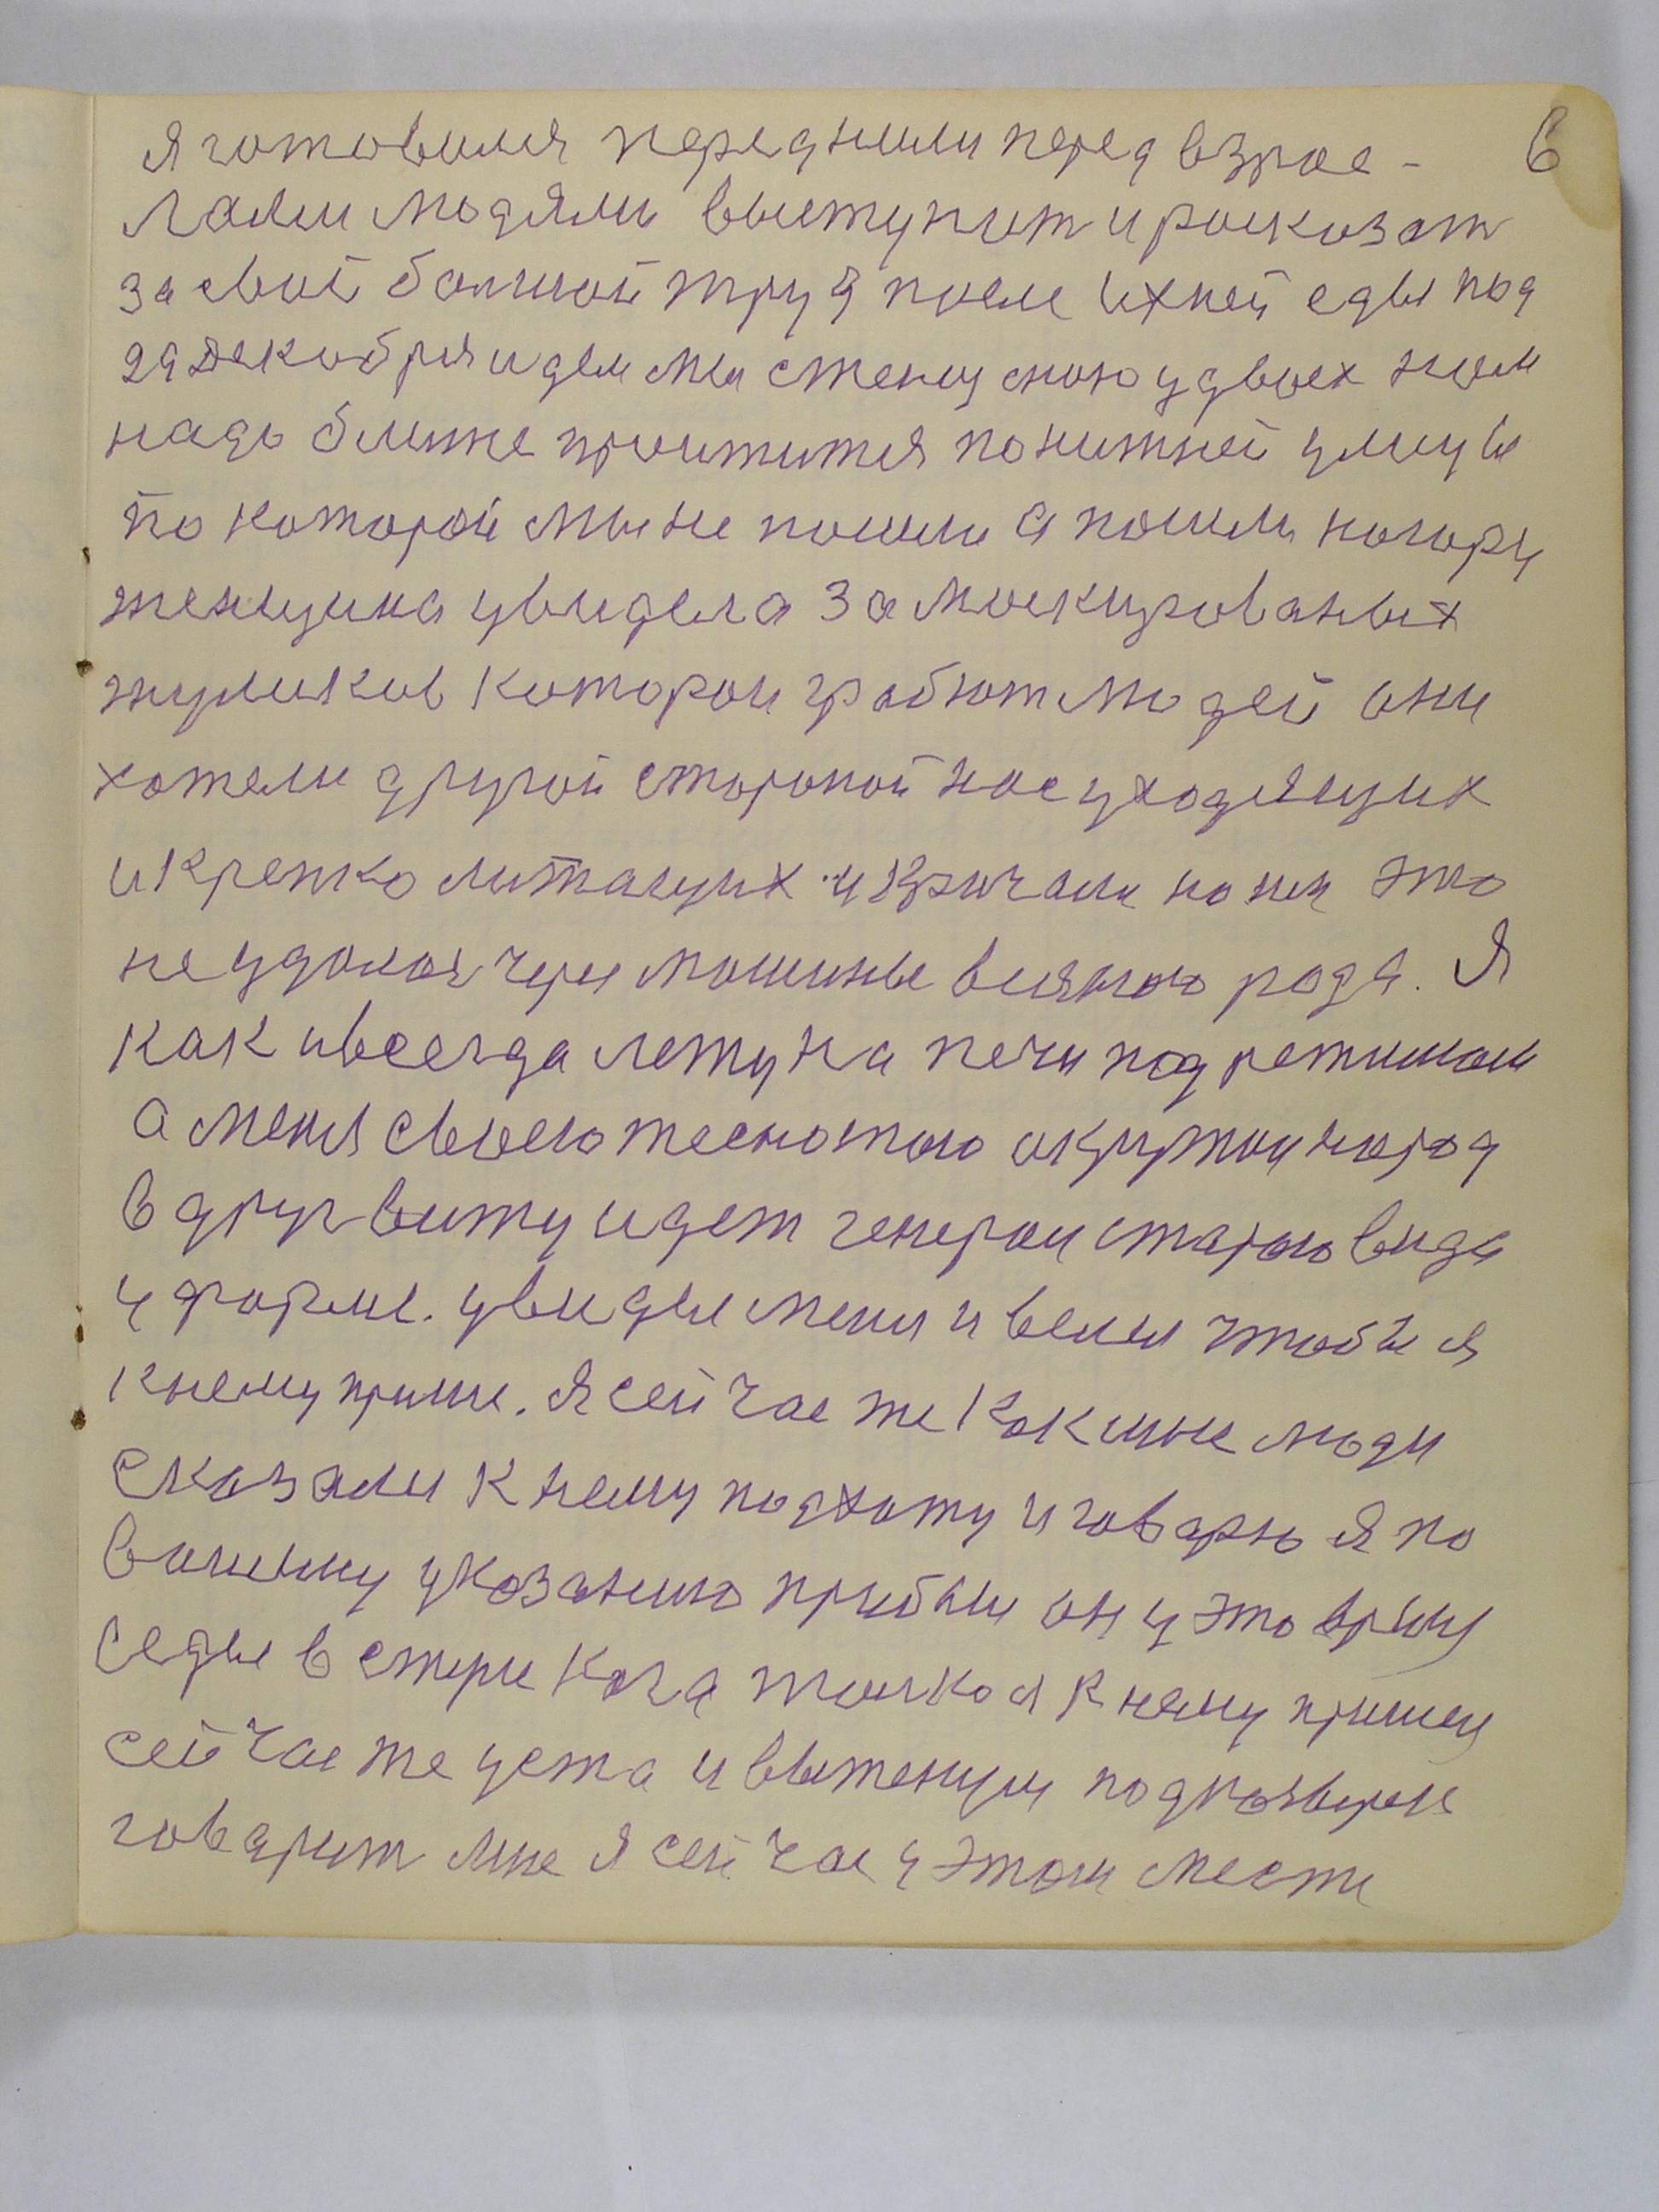 6
я готовился перед ними перед взрос-
лами людями выступит и росказат
за свой болшой труд после ихней еды под
29 декобря идем мы с женщиною удвоех нам
надо ближе проитится по нижней улицы
по которой мы не пошли а пошли на гору
женщина увидела замоскированых
жуликов которои граблют людей они
хотели другой стороной нас уходящих
и крепко литащих и кричали но им это
не удолося через мошины всякого рода. Я
как и всегда лежу на печи под режимом
а меня своею теснотою окружил народ
вдруг вижу идет генерал старого вида
у форме. увидел меня и велел чтобы я
к нему пришел. Я сейчас же как мне люди
сказали к нему подхожу и говарю я по
вашему указанию прибыл он у это время
седел в стуле кагда толко я к нему пришел
сейчас же устал и вытенулся под козырек
говарит мне я сейчас у этом месте